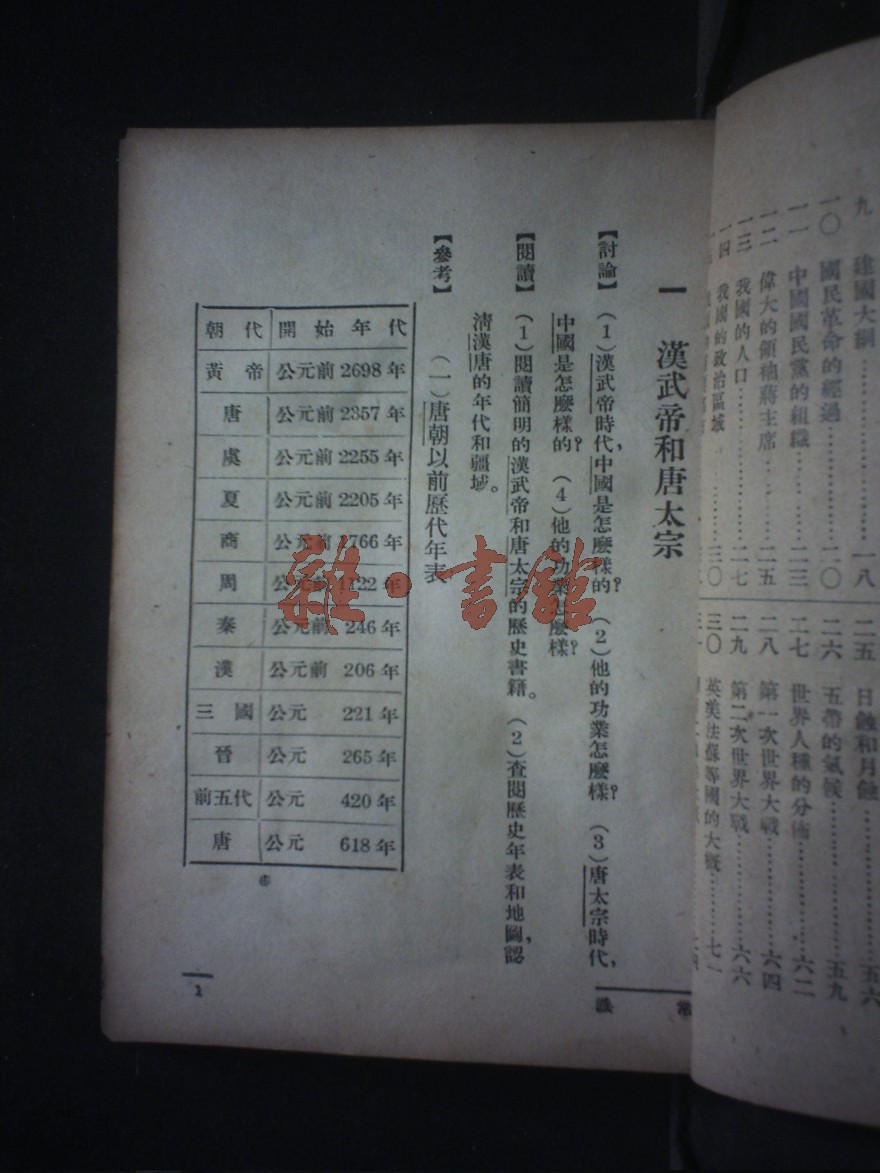 九　建國大綱……一八
一〇　國民革命的經過……二〇
一一　中國國民黨的組織……二三
一二　偉大的領袖蔣主席……二五
一三　我國的人口……二七
一四　我國的政治區域……三〇
二五　日蝕和月蝕……五六
二六　五帶的氣候……五九
二七　世界人種的分佈……六二
二八　第一次世界大戰……六四
二九　第二次世界大戰……六六
三〇　英美法蘇等國的大概……七一
常識
一　漢武帝和唐太宗
【討論】（1）漢武帝時代，中國是怎麼樣的？（2）他的功業怎麼樣？（3）唐太宗時代，
中國是怎麼樣的？（4）他的功業怎麼樣？
【閱讀】（1）閱讀簡明的漢武帝和唐太宗的歷史書籍。（2）查閱歷史年表和地圖，認
清漢唐的年代和疆域。
【參考】（一）唐朝以前歷代年表
朝代　開始年代
黃帝　公元前2698年
唐　公元前2357年
虞　公元前2255年
夏　公元前2205年
商　公元前1766年
周　公元前1122年
秦　公元前246年
漢　公元前206年
三國　公元221年
晉　公元265年
前五代　公元420年
唐　公元618年
1
雜·書館